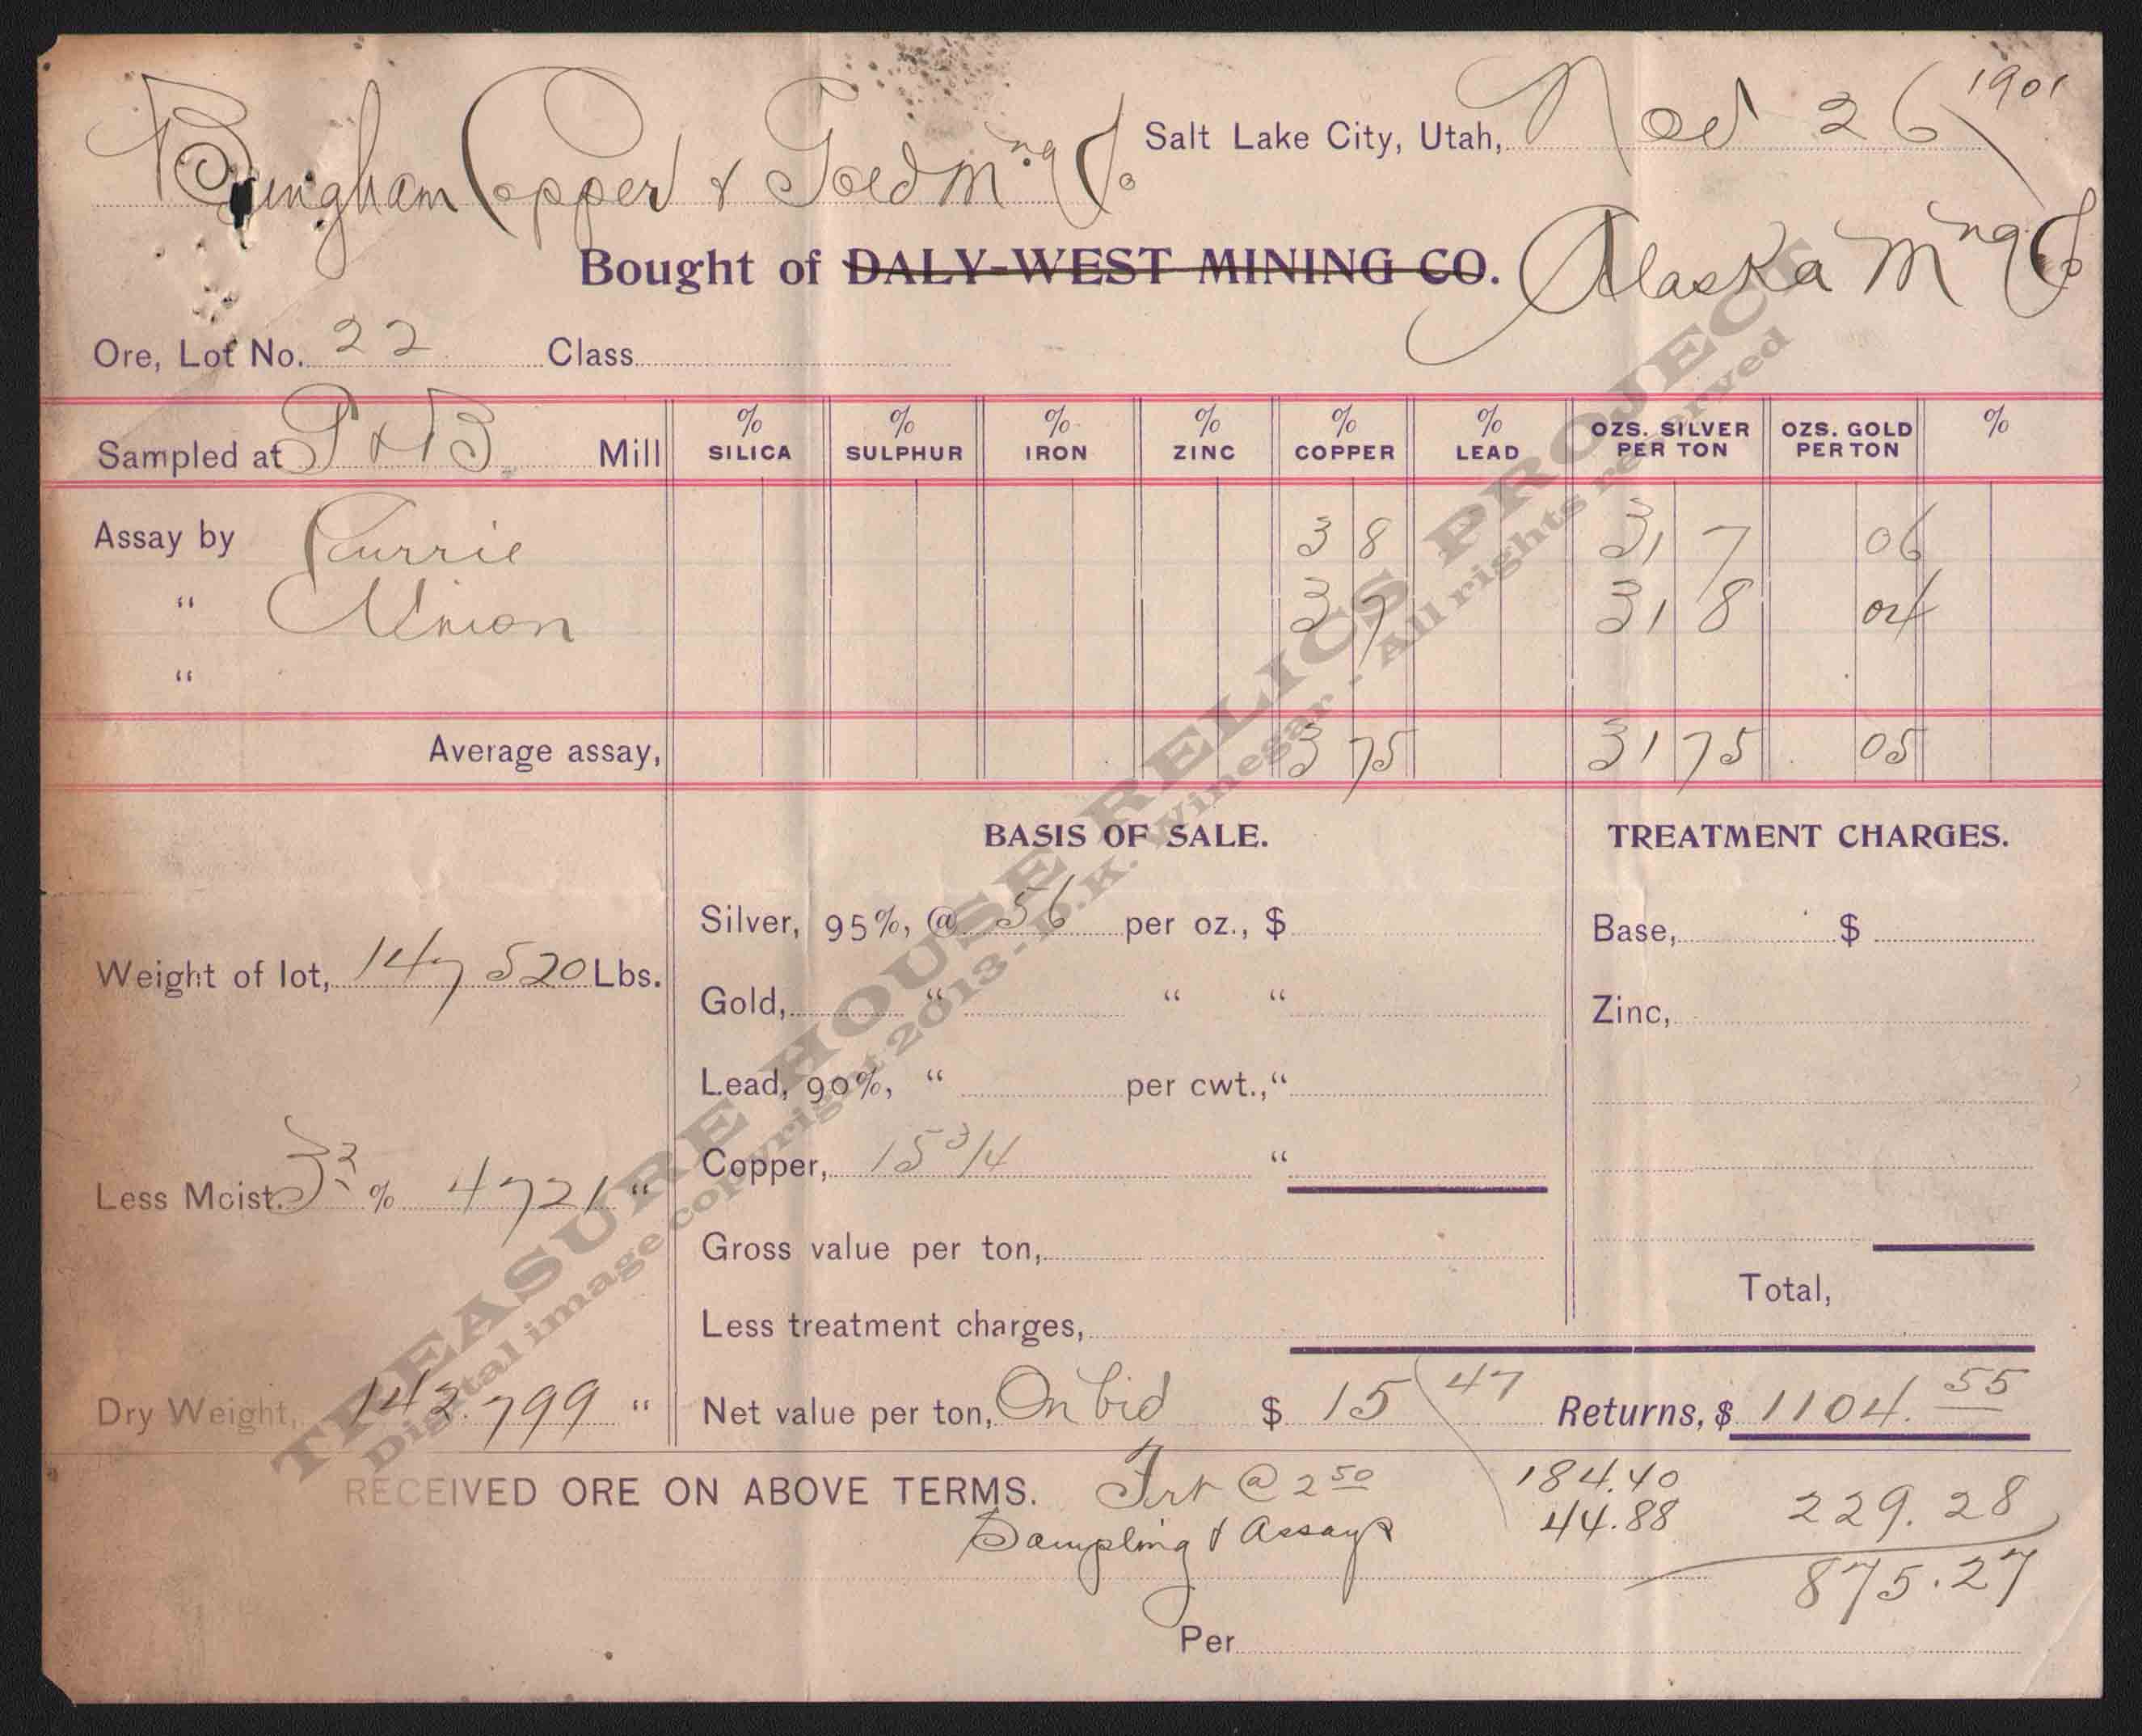 Bingham Copper & Gold Mng Co. Salt Lake City, Utah, Nov 26 1901
Bought of DALY-WEST MINING CO. Alaska Mng Co
Ore, Lot No. 22 Class
Sampled at P & B. Mill % SILICA % SULPHUR % IRON % ZINC % COPPER % LEAD OZS. SILVER PER TON OZS. GOLD PER TON %
Assay by Currie 3 8 31 7 06
" Union 3 7 31 8 04
"
Average assay, 3 75 31 75 05
BASIS OF SALE. TREATMENT CHARGES.
Silver, 95%, @ 56 per oz., $ Base, $
Weight of lot, 147 520 Lbs.
Gold, " " " Zinc,
Lead, 90%, " per cwt., "
Copper, 15 3/4 "
Less Moist. 3 2 % 4721 "
Gross value per ton,
Total,
Less treatment charges,
Dry Weight, 142.799 " Net value per ton, On bid $ 15 47 Returns, $ 1104.55
RECEIVED ORE ON ABOVE TERMS. Frt @ 2 50 184.40
Sampling & Assays 44.88 229.28
875.27
Per
TREASURE HOUSE RELICS PROJECT
Digital image copyright 2013 - D.K. Winegar - All rights reserved